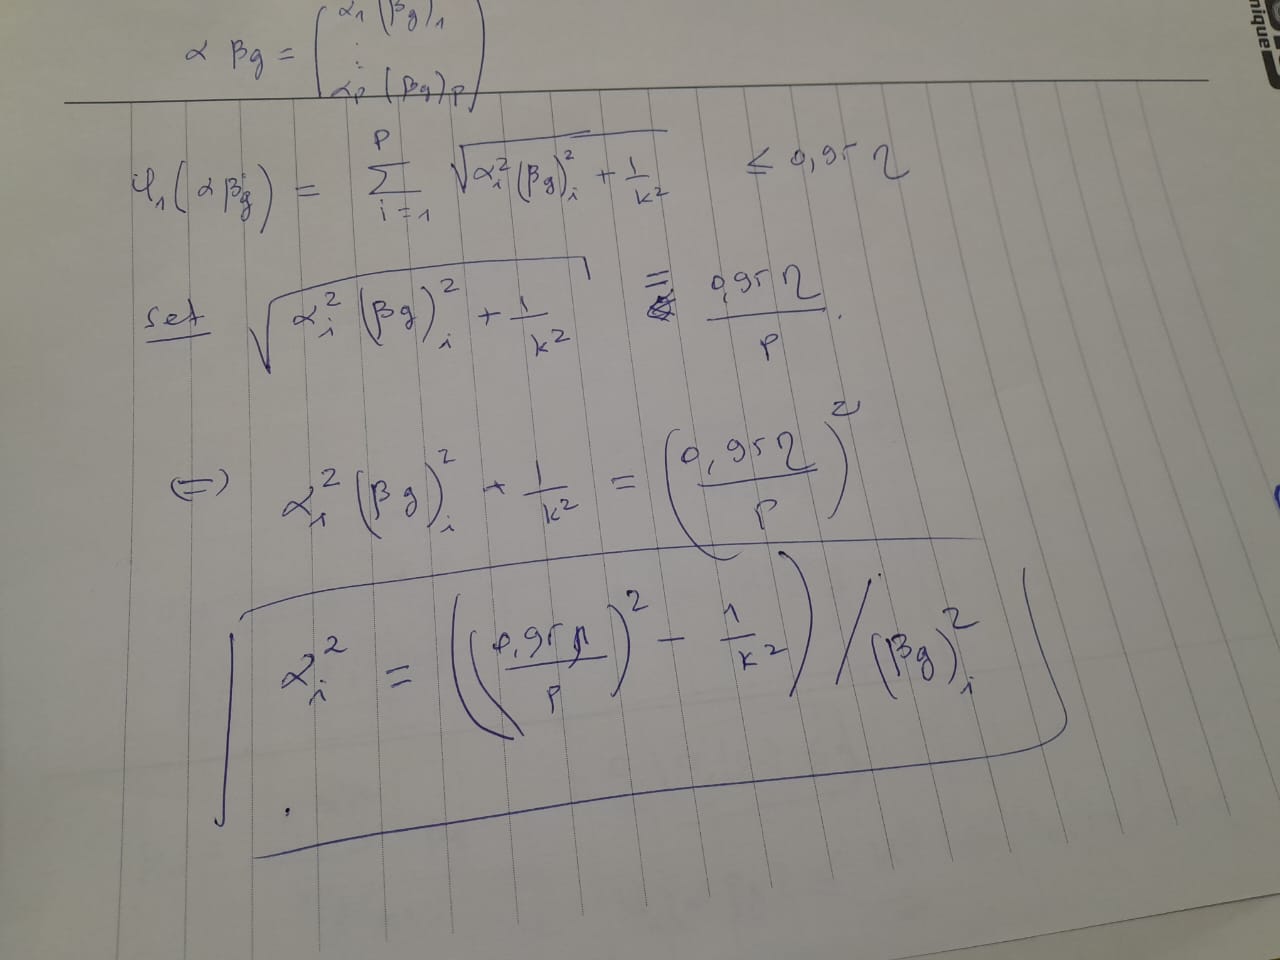 α βg = ( α₁ (βg)₁
⋮
αp (βg)p )
φ₁(α βg) = Σ_{i=1}^{p} √(αᵢ² (βg)ᵢ² + 1/k²) ≤ 0,95 η
set √(αᵢ² (βg)ᵢ² + 1/k²) = 0,95 η / p .
⇔ αᵢ² (βg)ᵢ² + 1/k² = (0,95 η / p)²
αᵢ² = ((0,95 η / p)² − 1/k²) / (βg)ᵢ²
nique